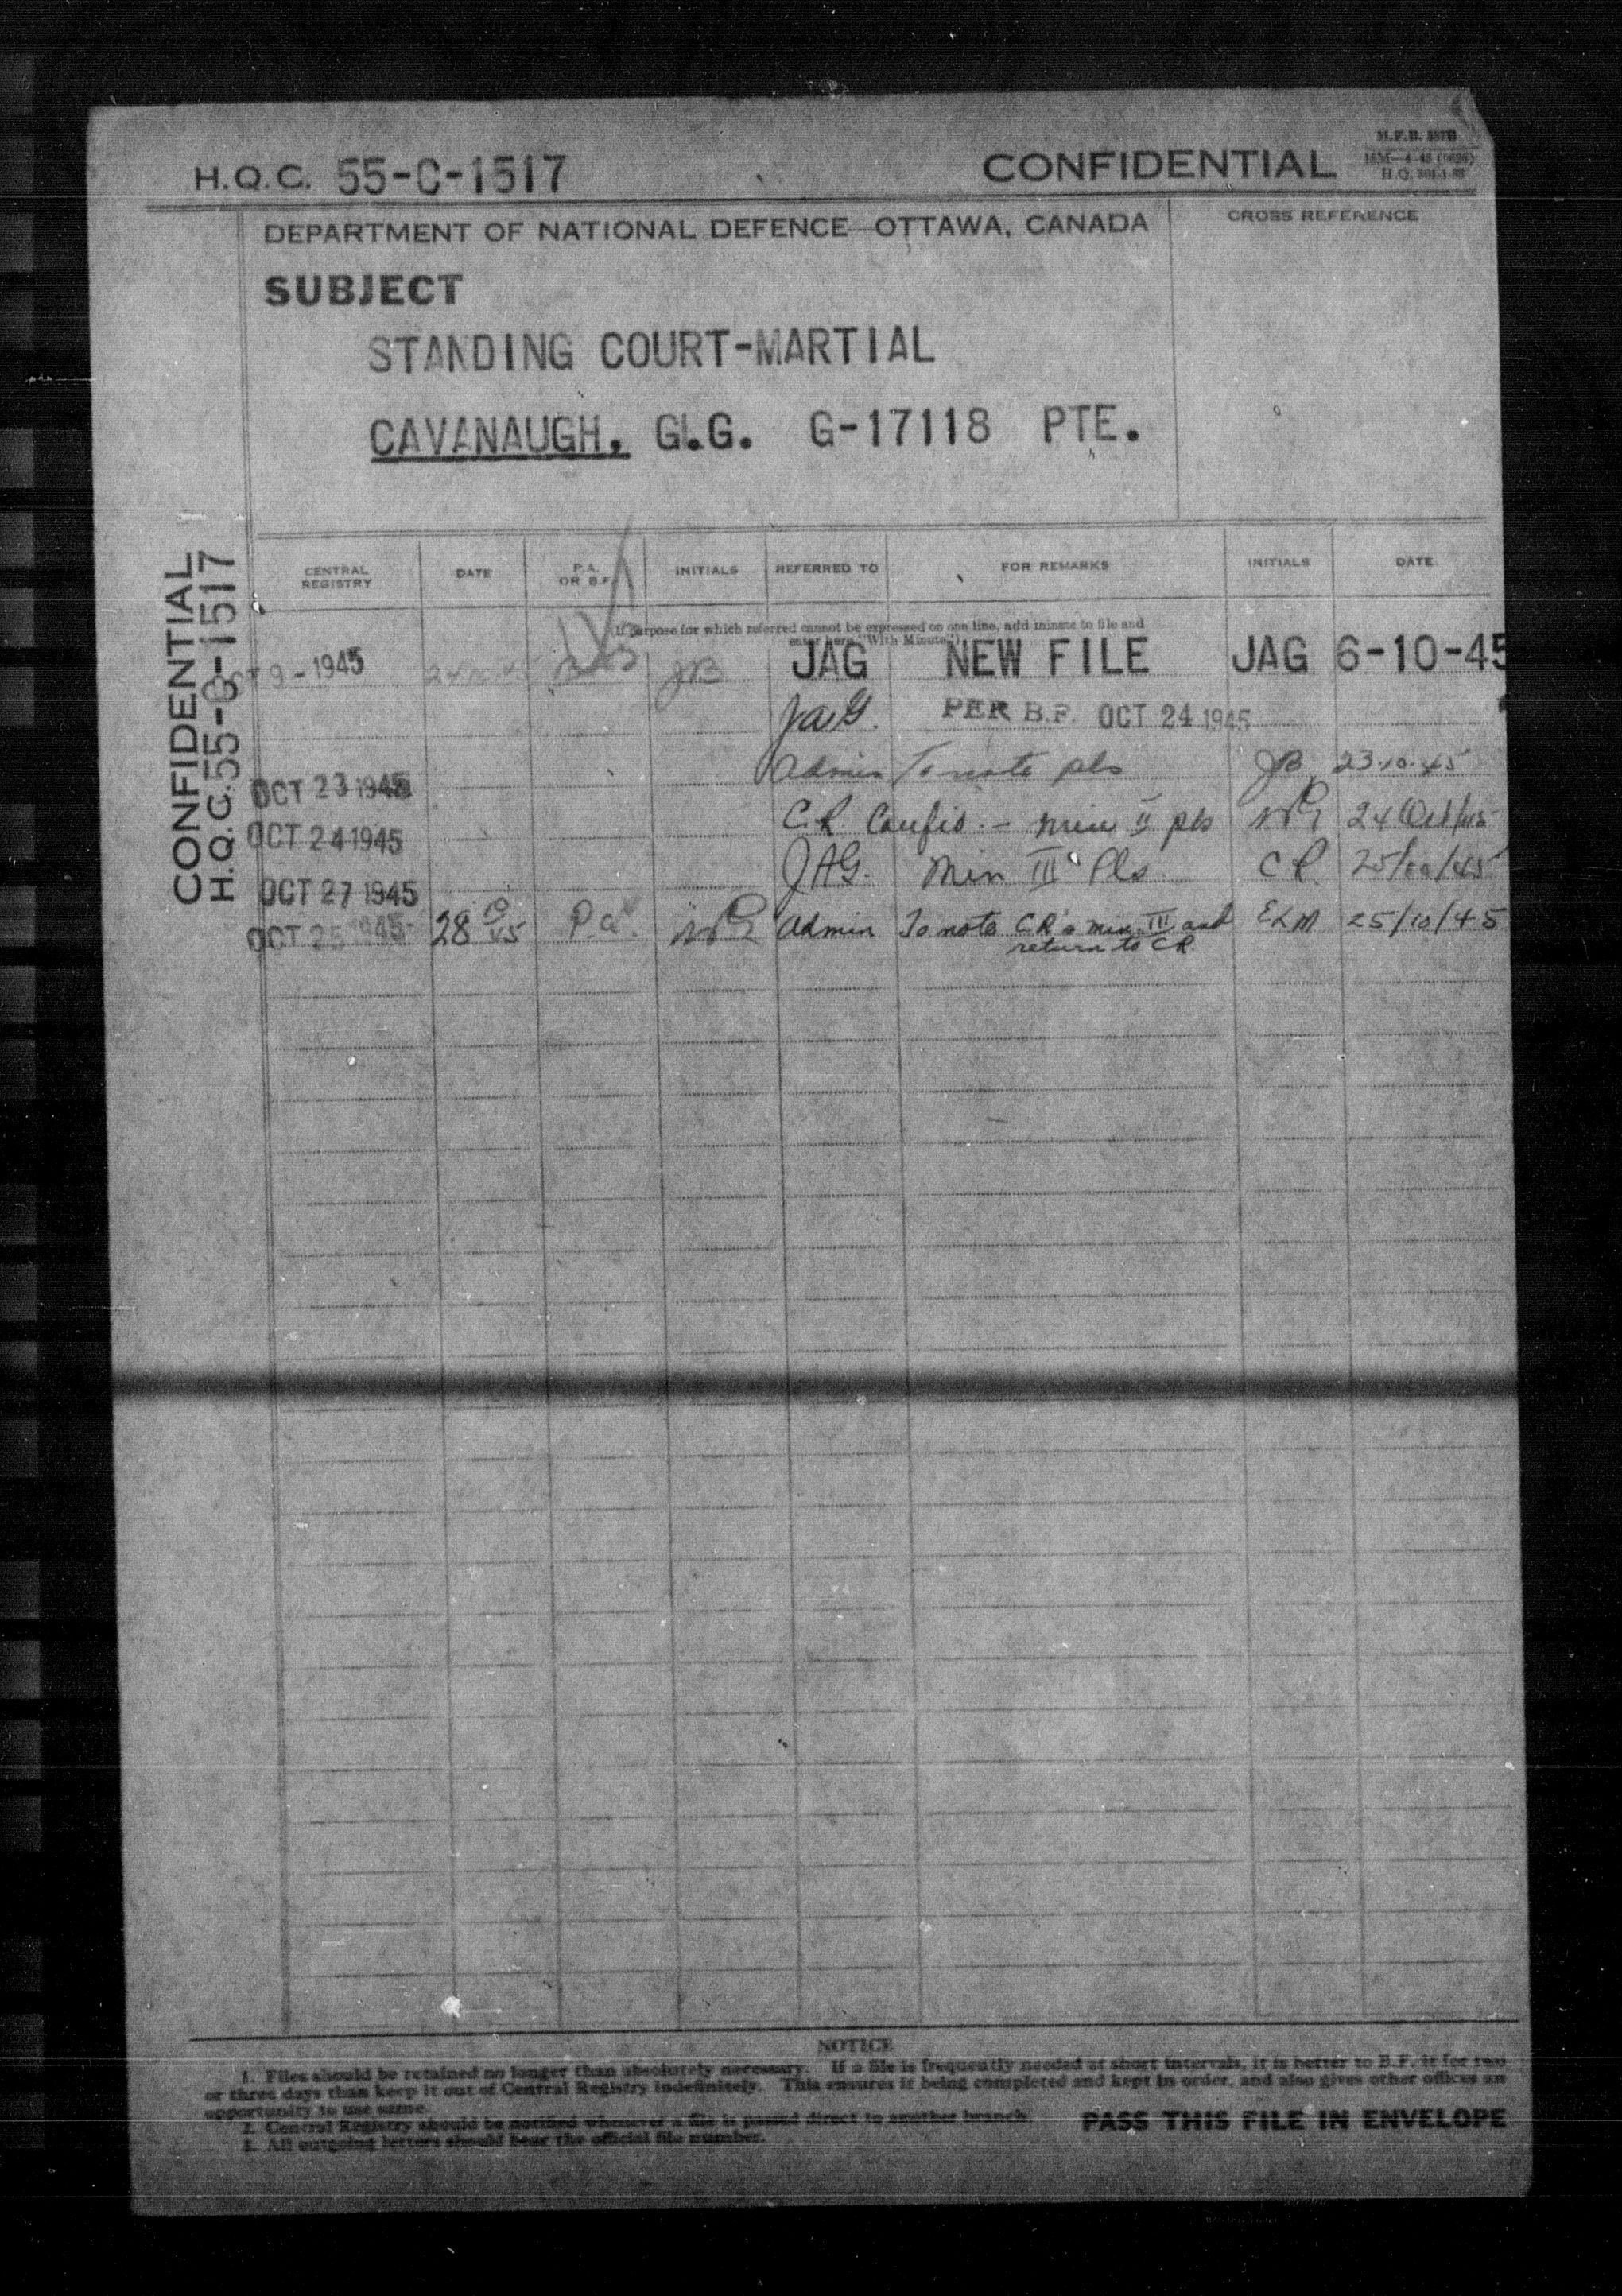 M.F.B. 387B
H.Q.C. 55-C-1517 CONFIDENTIAL
DEPARTMENT OF NATIONAL DEFENCE OTTAWA, CANADA
CROSS REFERENCE
SUBJECT
STANDING COURT-MARTIAL
CAVANAUGH, G.G. G-17118 PTE.
CONFIDENTIAL
H.Q.C. 55-C-1517
CENTRAL REGISTRY DATE P.A. OR B.F. INITIALS REFERRED TO FOR REMARKS INITIALS DATE
(If purpose for which referred cannot be expressed on one line, add minute to file and
enter here "With Minute")
OCT 9-1945 JB JAG NEW FILE JAG 6-10-45
JAG. PER B.F. OCT 24 1945
OCT 23 1945 Admin To note pls JB 23-10-45
OCT 24 1945 C.R. Confid. - Min II pls 24 Oct/45
OCT 27 1945 JAG. Min III Pls. C.R. 25/10/45
OCT 25 1945 28 10/45 P.a. Admin To note C.R's min III and ELM 25/10/45
return to C.R.
NOTICE
1. Files should be retained no longer than absolutely necessary. If a file is frequently needed at short intervals, it is better to B.F. it for two
or three days than keep it out of Central Registry indefinitely. This ensures it being completed and kept in order, and also gives other offices an
opportunity to use same.
2. Central Registry should be notified whenever a file is passed direct to another branch.
3. All outgoing letters should bear the official file number.
PASS THIS FILE IN ENVELOPE